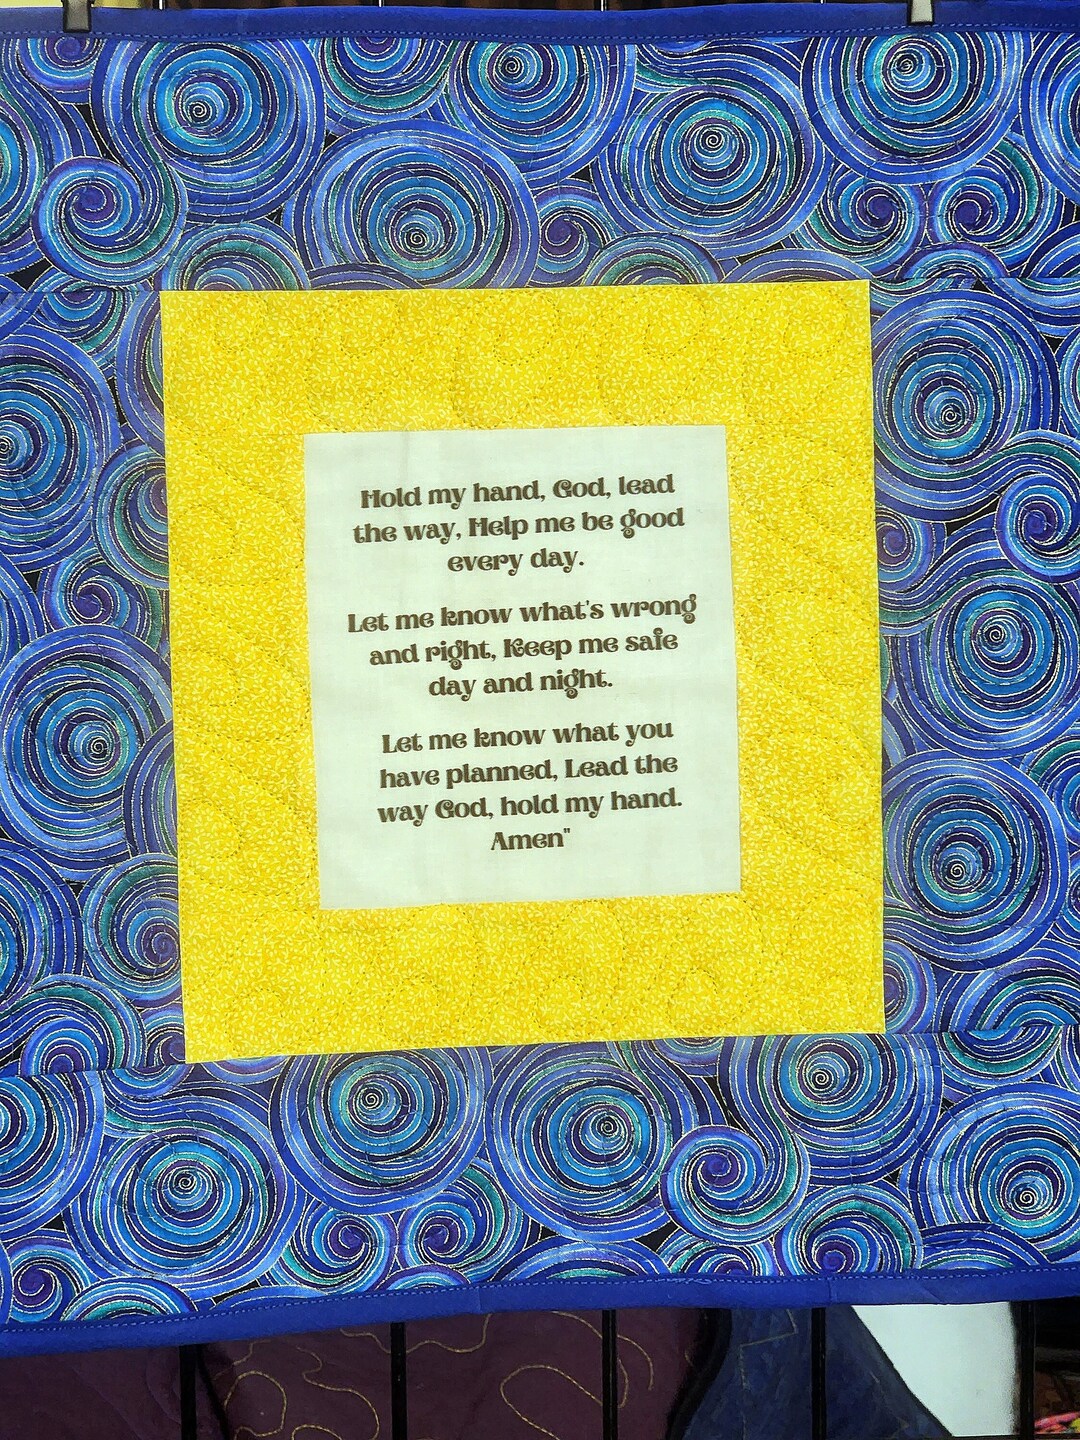 Hold my hand, God, lead
the way, Help me be good
every day.
Let me know what's wrong
and right, Keep me safe
day and night.
Let me know what you
have planned, Lead the
way God, hold my hand.
Amen"